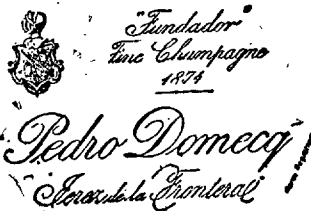 "Fundador"
Fine Champagne
1874
Pedro Domecq
Jerez de la Frontera